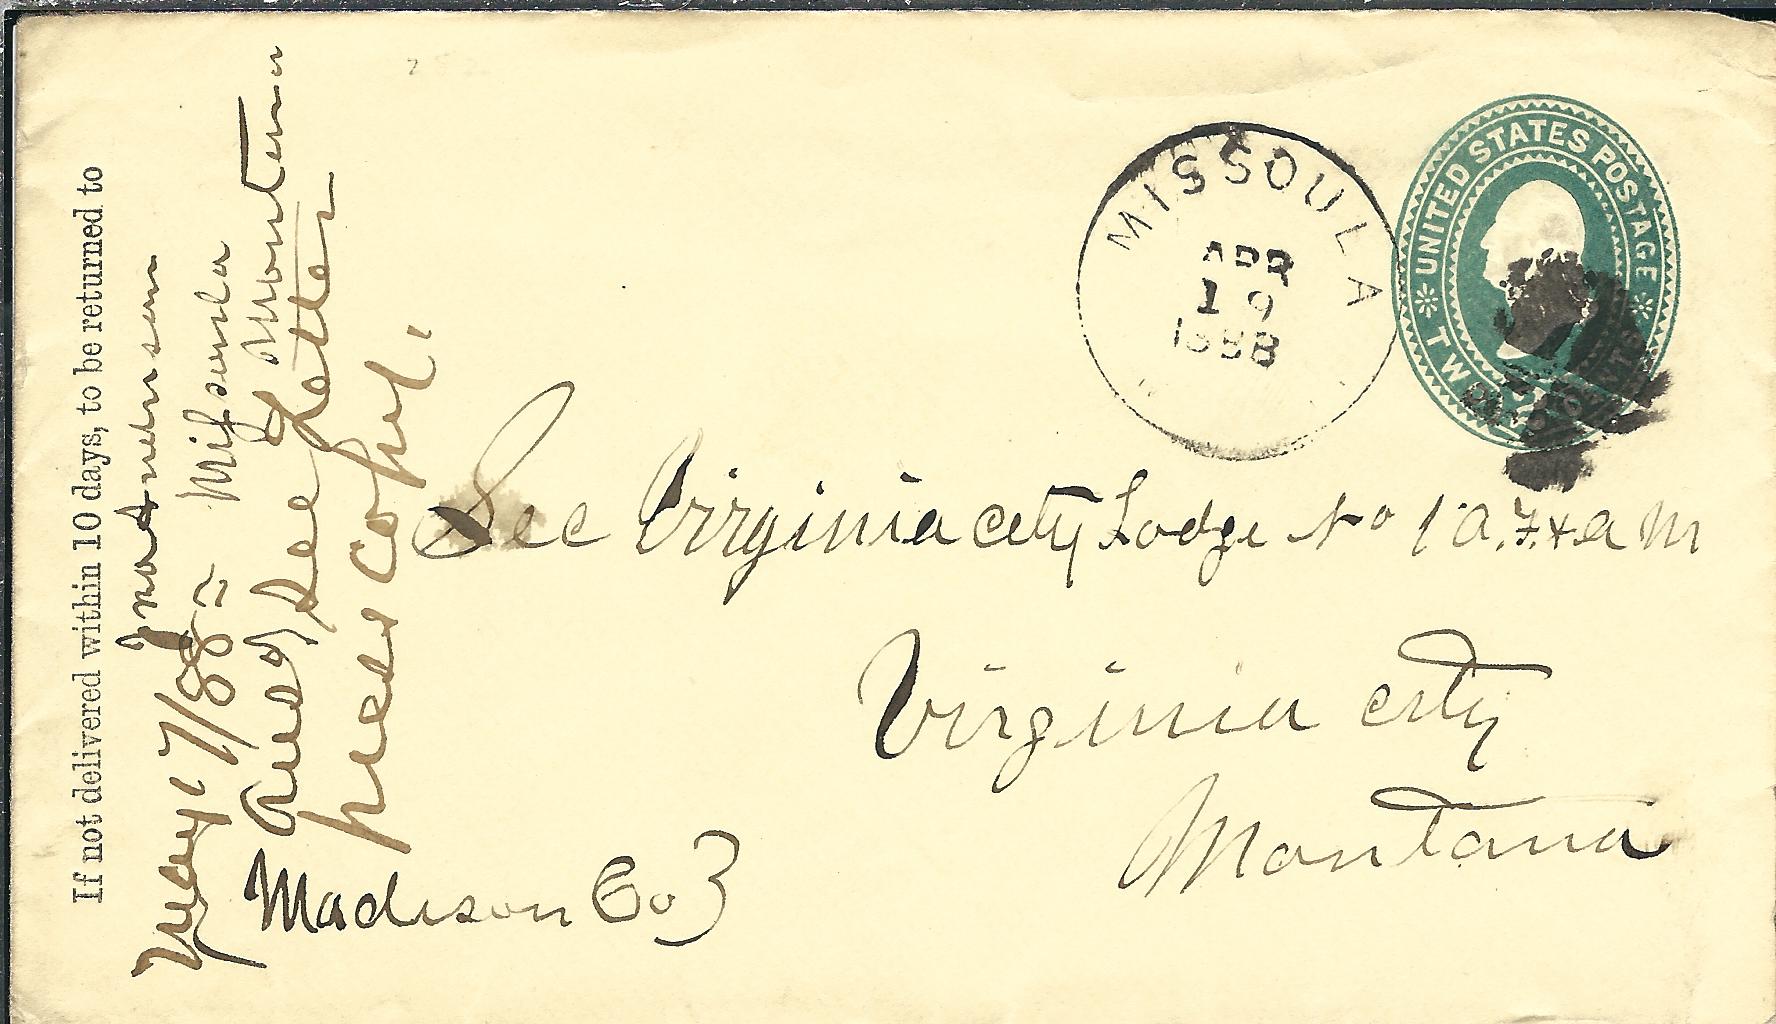 If not delivered within 10 days, to be returned to
Jno Anderson
Missoula
Montana
May 7/88
Ansd See Letter
press Copy.
MISSOULA
APR
19
1888
UNITED STATES POSTAGE
TWO CENTS
Sec Virginia City Lodge No 1 A.F. & A M
Virginia City
Montana
Madison Co